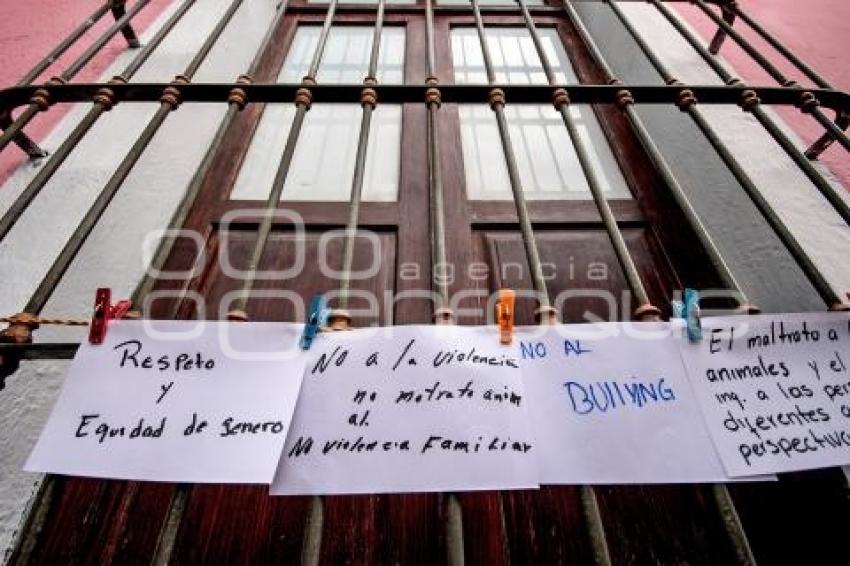 Respeto
y
Equidad de genero
No a la violencia
no motrato anim
al.
No violencia Familiar
NO AL
BULLYING
El maltrato a
animales y el
ing. a las pers
diferentes a
perspectivas
agencia
enfoque